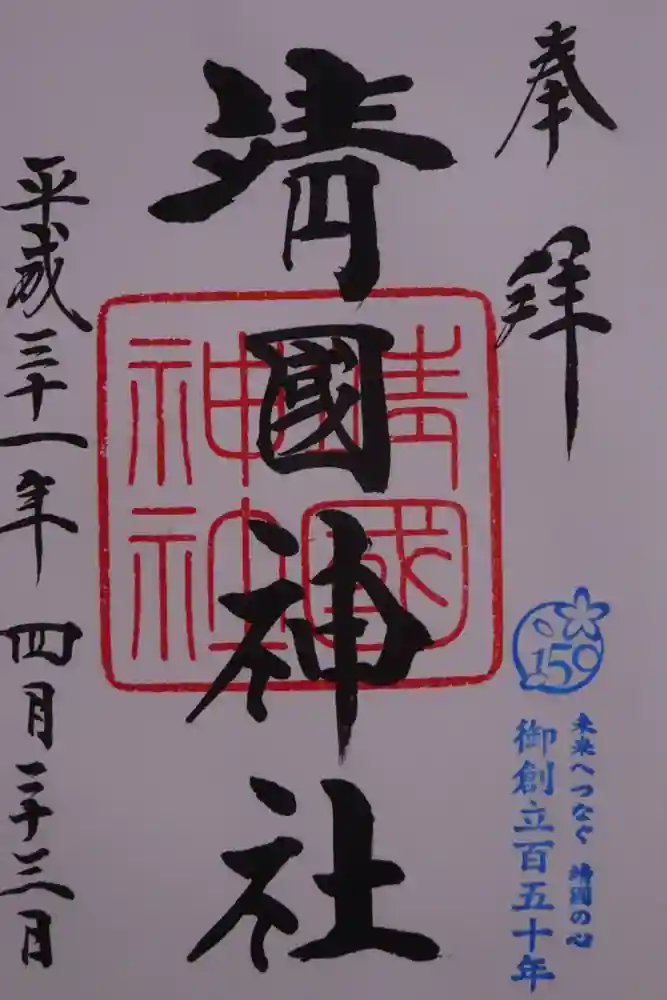 奉拝
150
未来へつなぐ 靖國の心
御創立百五十年
靖國神社
靖國
神社
平成三十一年 四月二十三日